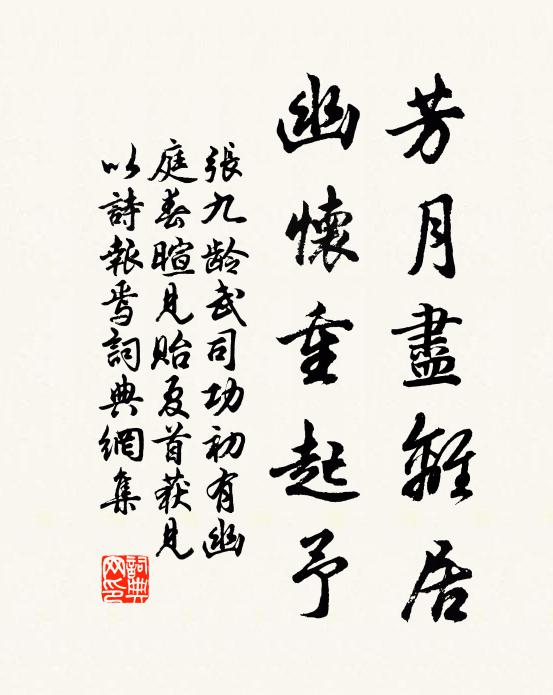 芳月盡離居
幽懷重起予
張九齡武司功初有幽
庭春暄見貽夏首獲見
以詩報焉詞典網集
詞典网印